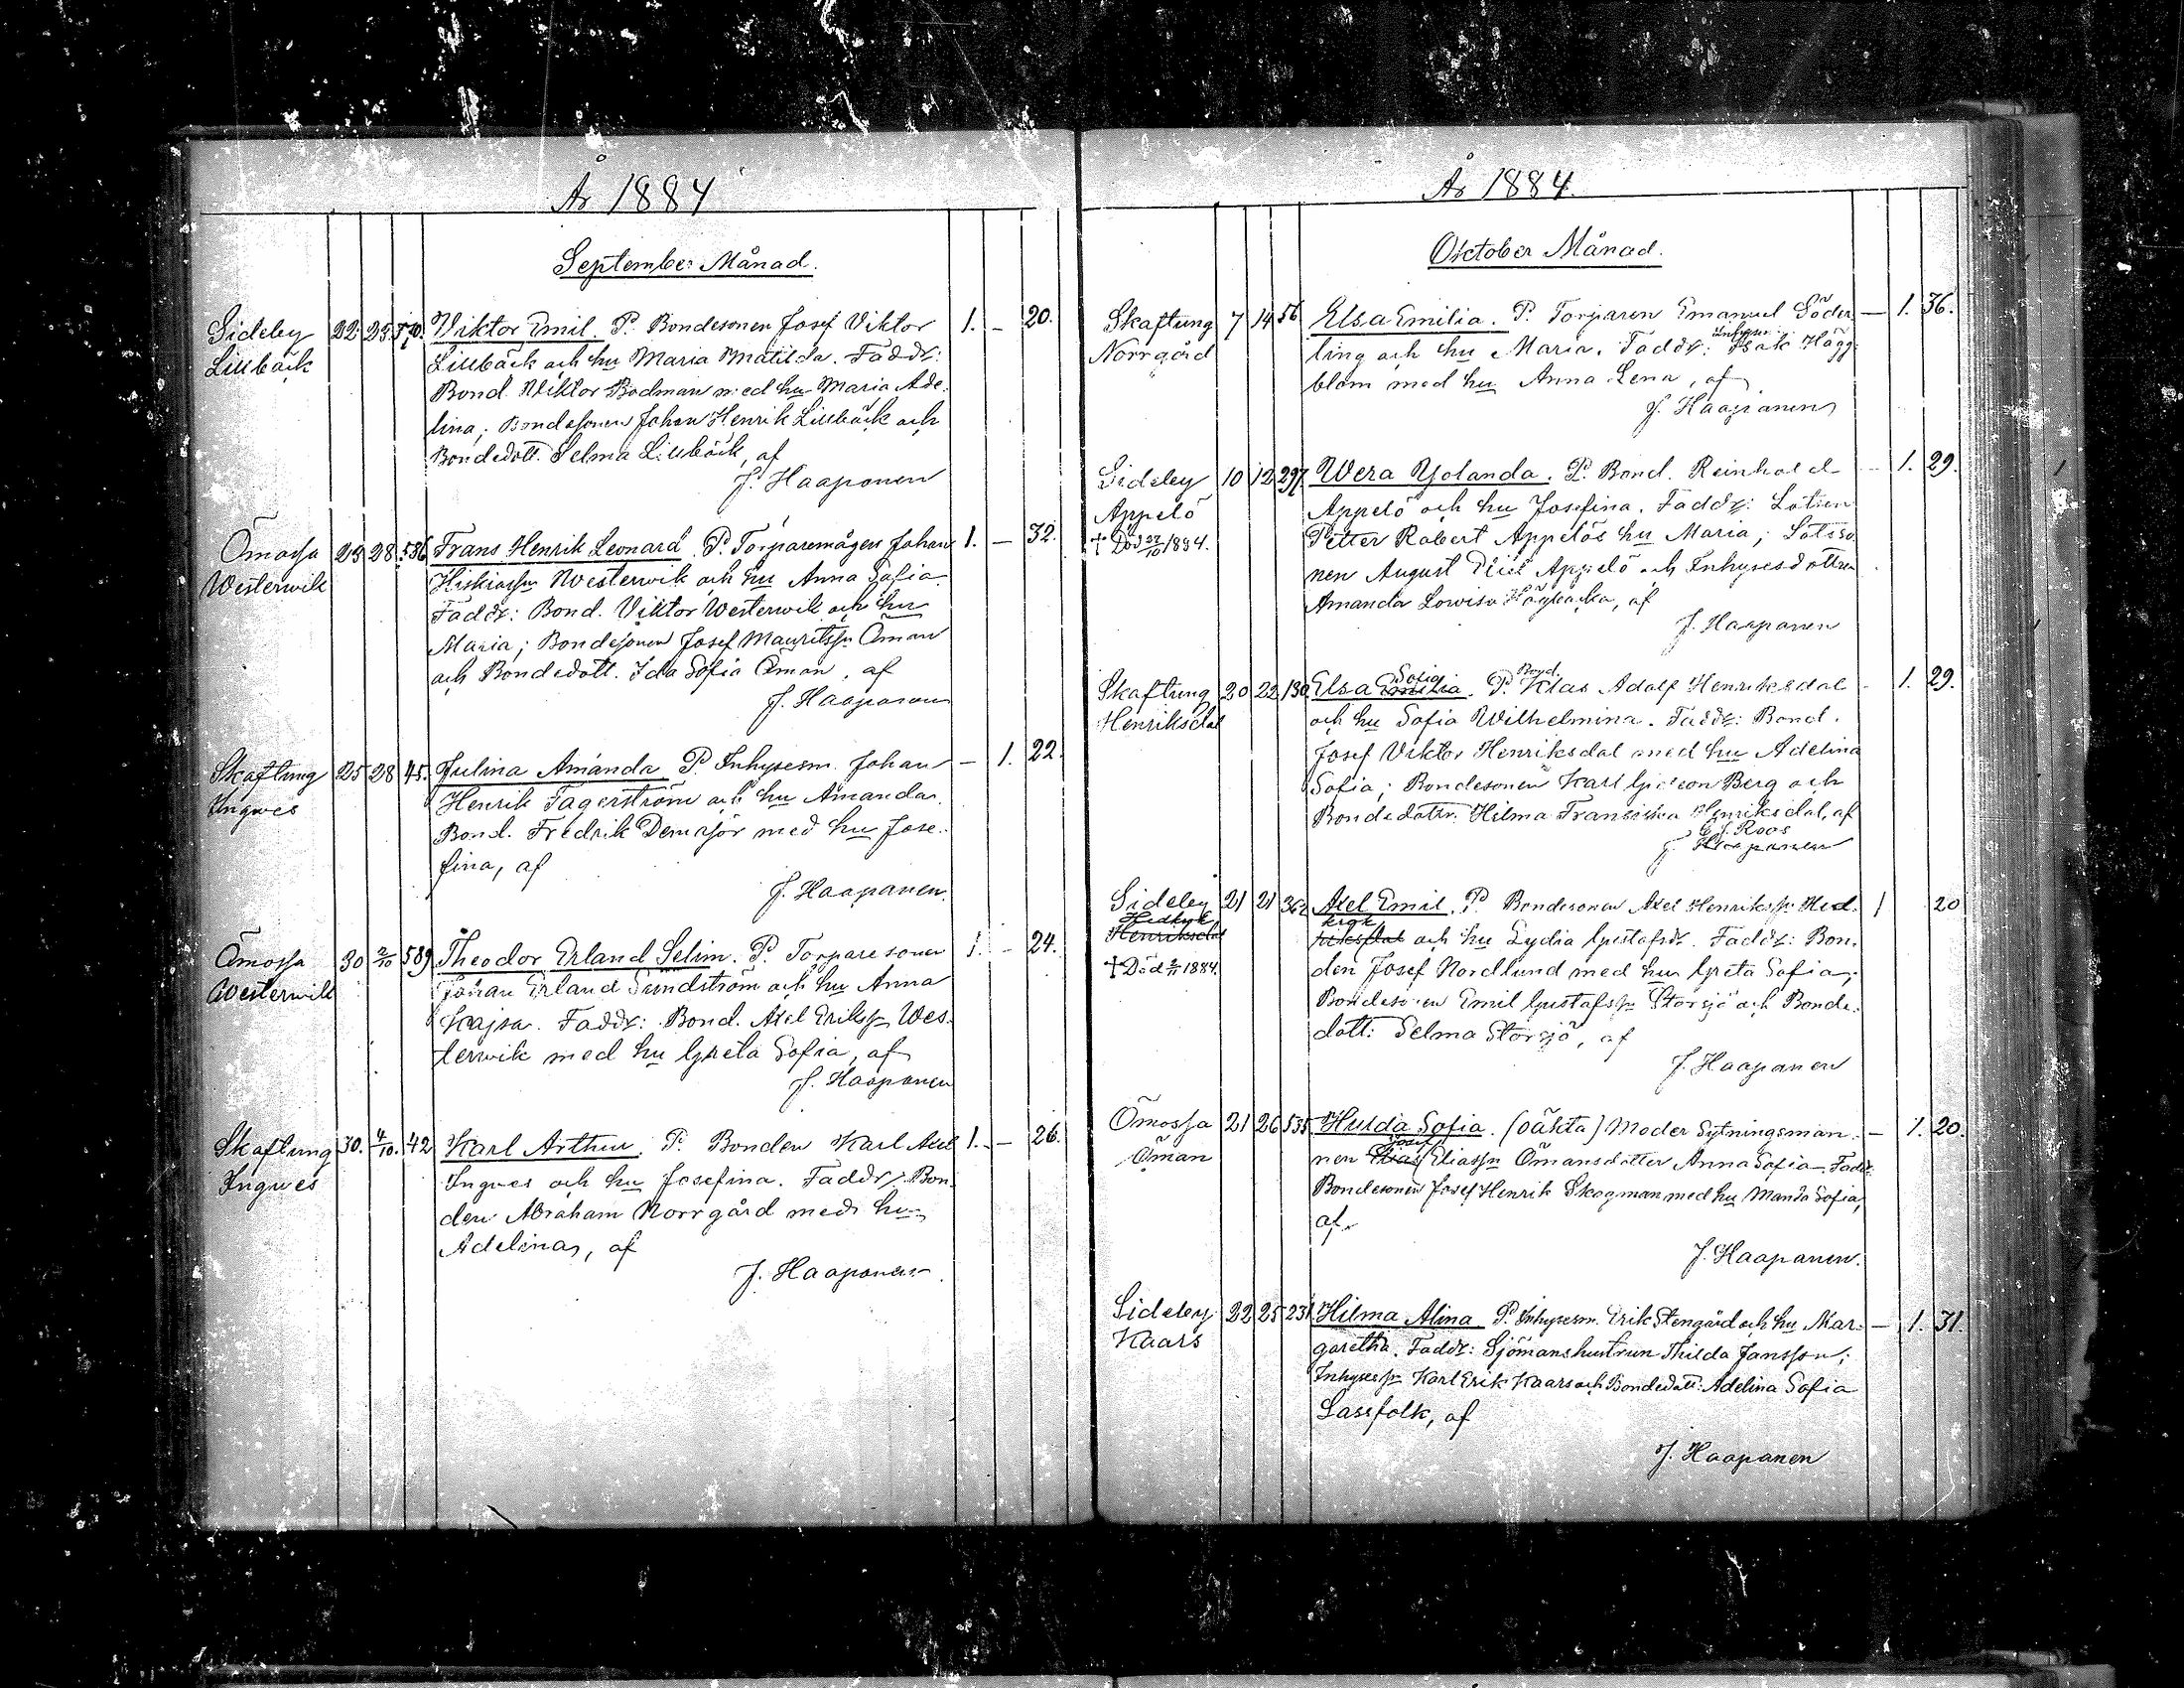 År 1884
September Månad.
Sideby 22 25 Viktor Emil. P. Bondesonen Josef Viktor 1. – 20.
Lillbäck Lillbäck och hu Maria Matilda. Faddr:
Bond. Viktor Bodman med hu Maria Ade-
lina; Bondesonen Johan Henrik Lillbäck och
Bondedott. Selma Lillbäck, af
J. Haapanen
Ömossa 23 28 536 Frans Henrik Leonard. P. Torparemågen Johan 1. – 32.
Westerwik Hiskiasson Westerwik och hu Anna Sofia
Faddr: Bond. Viktor Westerwik och hu
Maria; Bondesonen Josef Mauritssn Öman
och Bondedott. Ida Sofia Öman, af
J. Haapanen
Skaftung 25 28 45. Julina Amanda P. Inhysesm. Johan – 1. 22.
Ingwes Henrik Fagerström och hu Amanda.
Bond. Fredrik Demasjör med hu Jose-
fina, af
J. Haapanen.
Ömossa 30 2/10 589 Theodor Erland Selim. P. Torparesonen 1. – 24.
Westerwik Johan Erland Sundström och hu Anna
Kajsa. Faddr: Bond. Axel Erikssn Wes-
terwik med hu Greta Sofia, af
J. Haapanen
Skaftung 30. 4/10. 42 Karl Arthur. P. Bonden Karl Axel 1. – 26.
Ingwes Ingwes och hu Josefina. Faddr: Bon-
den Abraham Norrgård med hu
Adelina, af
J. Haapanen.
År 1884.
October Månad.
Skaftung 7 14 56 Elsa Emilia. P. Torparen Emanuel Söder- – 1. 36.
Norrgård ling och hu Maria. Faddr: Inhysn Isak Hägg-
blom med hu Anna Lena, af
J. Haapanen
Sideby 10 12 297 Wera Yolanda. P. Bond. Reinhold – 1. 29.
Appelö Appelö och hu Josefina. Faddr: Lotsen
† Död 22/10 1884. Petter Robert Appelös hu Maria; Lotsso-
nen August Appelö och Inhysesdottren
Amanda Lowisa Högbacka, af
J. Haapanen
Sofia Bond.
Skaftung 20 22 130 Elsa Emilia. P. Klas Adolf Henriksdal – 1. 29.
Henriksdal och hu Sofia Wilhelmina. Faddr: Bond.
Josef Viktor Henriksdal med hu Adelina
Sofia; Bondesonen Karl Gideon Berg och
Bondedottr. Hilma Fransiska Henriksdal, af
J. Roos
J. Haapanen
Sideby 21 21 362 Axel Emil. P. Bondesonen Axel Henrikssn Hed- 1 20
Henriksdal och hu Lydia Gustafsdr. Faddr: Bon-
† Död 2/11 1884. den Josef Nordlund med hu Greta Sofia;
Bondesonen Emil Gustafssn Storsjö och Bonde-
dott: Selma Storsjö, af
J. Haapanen
Ömossa 21 26 535 Hulda Sofia. (oäkta) Moder Sytningsman- – 1. 20.
Öman nen Elias Josef Eliassn Ömansdotter Anna Sofia. Faddr
Bondesonen Josef Henrik Skogman med hu Manda Sofia,
af
J. Haapanen.
Sideby 22 25 231 Hilma Alina P. Inhysesm. Erik Stengård och hu Mar- – 1. 31.
Kaars garetha. Faddr: Sjömanshustrun Thilda Jansson;
Inhysessn Karl Erik Kaars och Bondedott: Adelina Sofia
Lassfolk, af
J. Haapanen